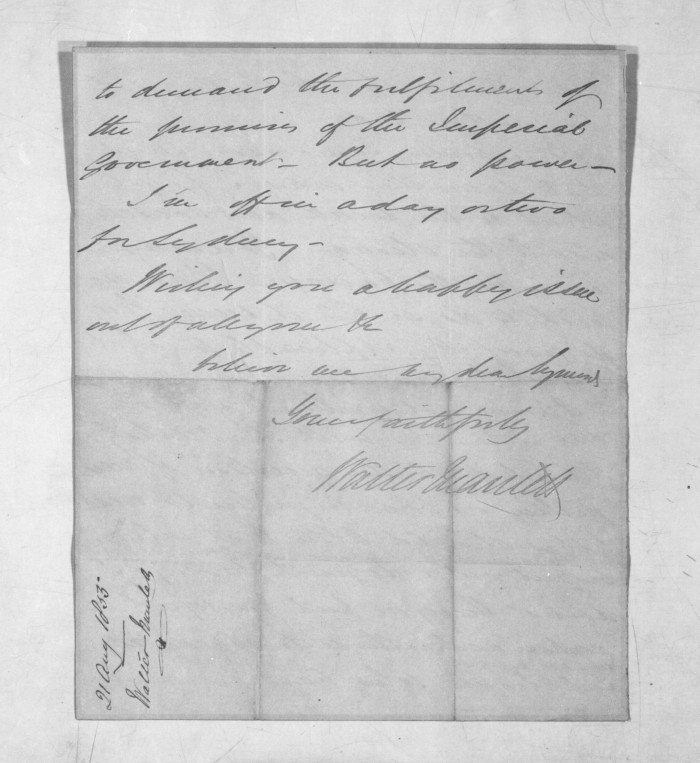 to demand the fulfilment of
the promises of the Imperial
Government – But no power –
I'm off in a day or two
for Sydney –
Wishing you a happy issue
out of all your &c
believe me my dear Symonds
Yours faithfully
Walter Mantell
21 Aug 1853.
Walter Mantell